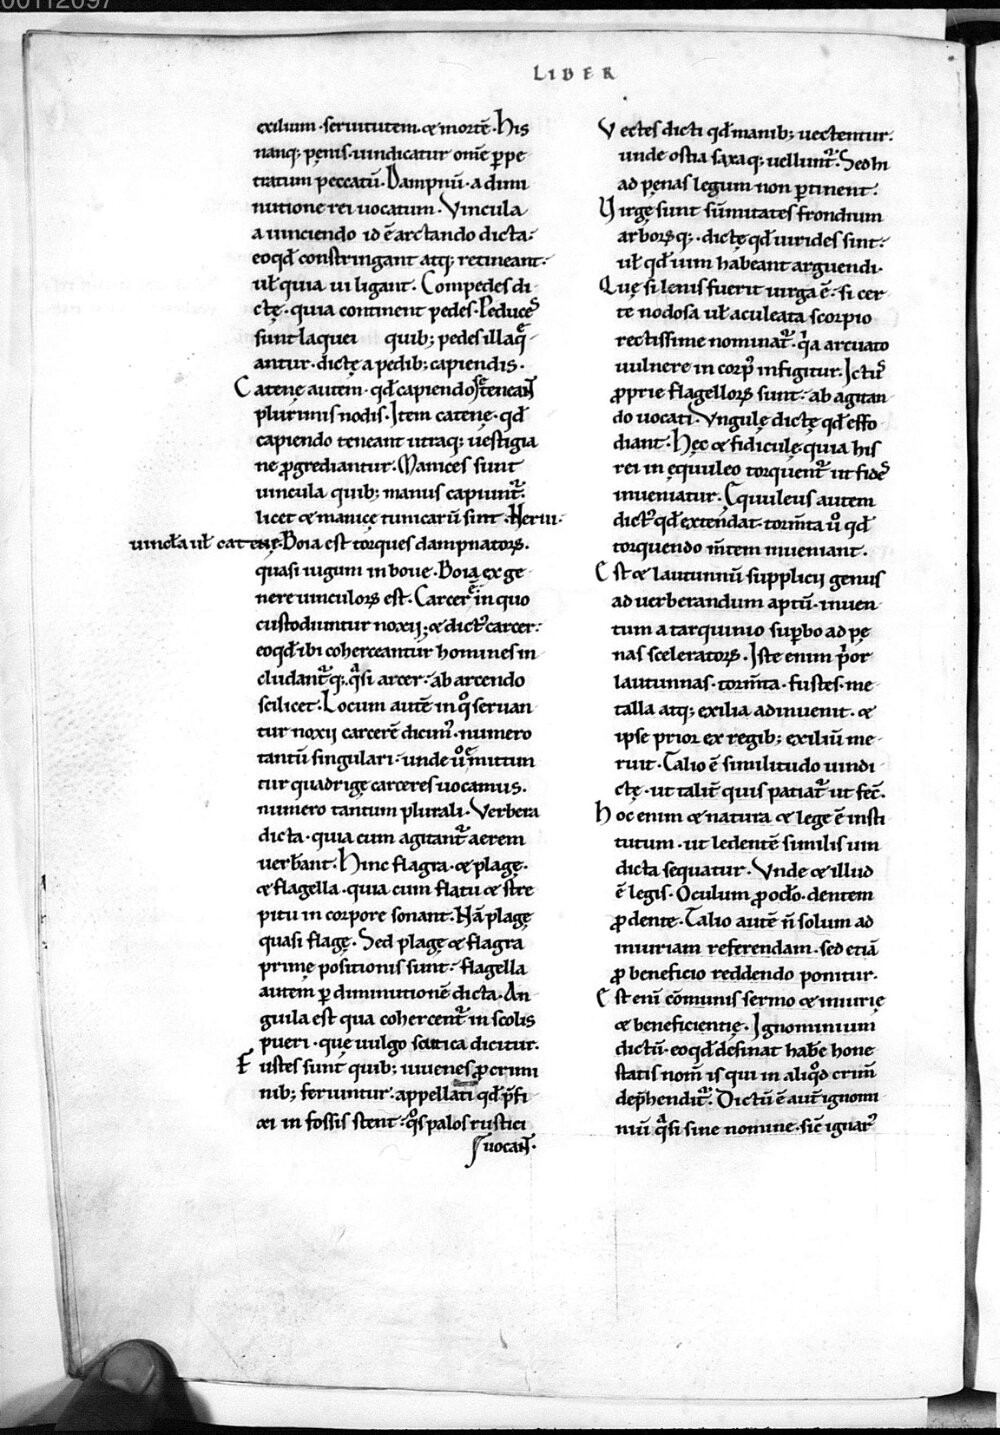 LIBER
exilium · seruitutem · & mortē · His
nanq; pęnis · uindicatur om̄e ꝑpe
tratum peccatū. Dampnū · a dimi
nutione rei uocatum · Vincula
a uinciendo id ē arctando dicta:
eoqđ constringant atq; retineant:
uł quia ui ligant. Compedes di
ctę · quia continent pedes. Peducęs
sunt laquei quib; pedes illaquē
antur · dictę a pedib; capiendis.
Catenę autem · qđ capiendo se teneant
plurimis nodis. Item catenę · qđ
capiendo teneant utraq; uestigia
ne ꝓgrediantur. Manices sunt
uincula quib; manus capiunt᷑.
licet & manicę tunicarū sint. Nerui:
uincła uł catenę. Boia est torques dampnatoꝝ.
quasi iugum in boue. Boia ex ge
nere uinculoꝝ est. Carcer ē in quo
custodiuntur noxij; & dict᷒ carcer:
eoqđ ibi coherceantur homines in
cludant᷑q; qͣsi arcer: ab arcendo
scilicet. Locum autē in qͦ seruan
tur noxij carcerē dicim᷒. numero
tantū singulari: unde uͦ emittun
tur quadrigę carceres uocamus.
numero tantum plurali. Verbera
dicta · quia cum agitant᷑ aerem
uerb̄ant. Hinc flagra · & plagę.
& flagella · quia cum flatu & stre
pitu in corpore sonant. Nā plagę
quasi flagę. Sed plagę & flagra
primę positionis sunt: flagella
autem ꝑ diminutionē dicta. An
guila est qua cohercent᷑ in scolis
pueri · quę uulgo scutica dicitur.
Fustes sunt quib; iuuenes ꝓ crimi
nib; feriuntur: appellati qđ p̄fi
xi in fossis stent · qͦs palos rustici
uocant.
Vectes dicti qđ manib; uectentur:
unde ostia saxaq; uellunt᷑. Sed hi
ad pęnas legum non ꝑtinent:
Virgę sunt sūmitates frondium
arboꝝq; · dictę qđ uirides sint:
uł qđ uim habeant arguendi.
Quę si lenis fuerit uirga ē · si cer
te nodosa uł aculeata scorpio
rectissime nominat᷑ · qͥa arcuato
uulnere in corp᷒ infigitur. Ict᷒
ꝓprie flagelloꝝ sunt: ab agitan
do uocati. Vngulę dictę qđ effo
diant. Hęc & fidiculę quia his
rei in ęquuleo torquent᷑ ut fides
inueniatur. Equuleus autem
dict᷒ qđ extendat · torm̄ta uͦ qđ
torquendo m̄tem inueniant.
Est & lautumnū supplicij genus
ad uerberandum aptū · inuen
tum a tarquinio suꝑbo ad pę
nas sceleratoꝝ. Iste enim p̄or
lautumnas · torm̄ta · fustes · me
talla atq; exilia adinuenit · &
ipse prior ex regib; exiliū me
ruit. Talio ē similitudo uindi
ctę · ut talit̄ quis patiat᷑ ut fec̄.
Hoc enim & natura & lege ē insti
tutum · ut ledentē similis uin
dicta sequatur. Vnde & illud
ē legis. Oculum ꝓ ocło · dentem
ꝓ dente. Talio autē n̄ solum ad
iniuriam referendam · sed etiā
ꝓ beneficio reddendo ponitur.
Est enī cōmunis sermo & iniurię
& beneficientię. Ignominium
dictū · eoqđ desinat hab̄e hone
statis nom̄ is qui in aliqͦ crim̄
dep̄hendit᷑. Dictū ē aut̄ ignomi
niū qͣsi sine nomine · sic̄ ignar᷒